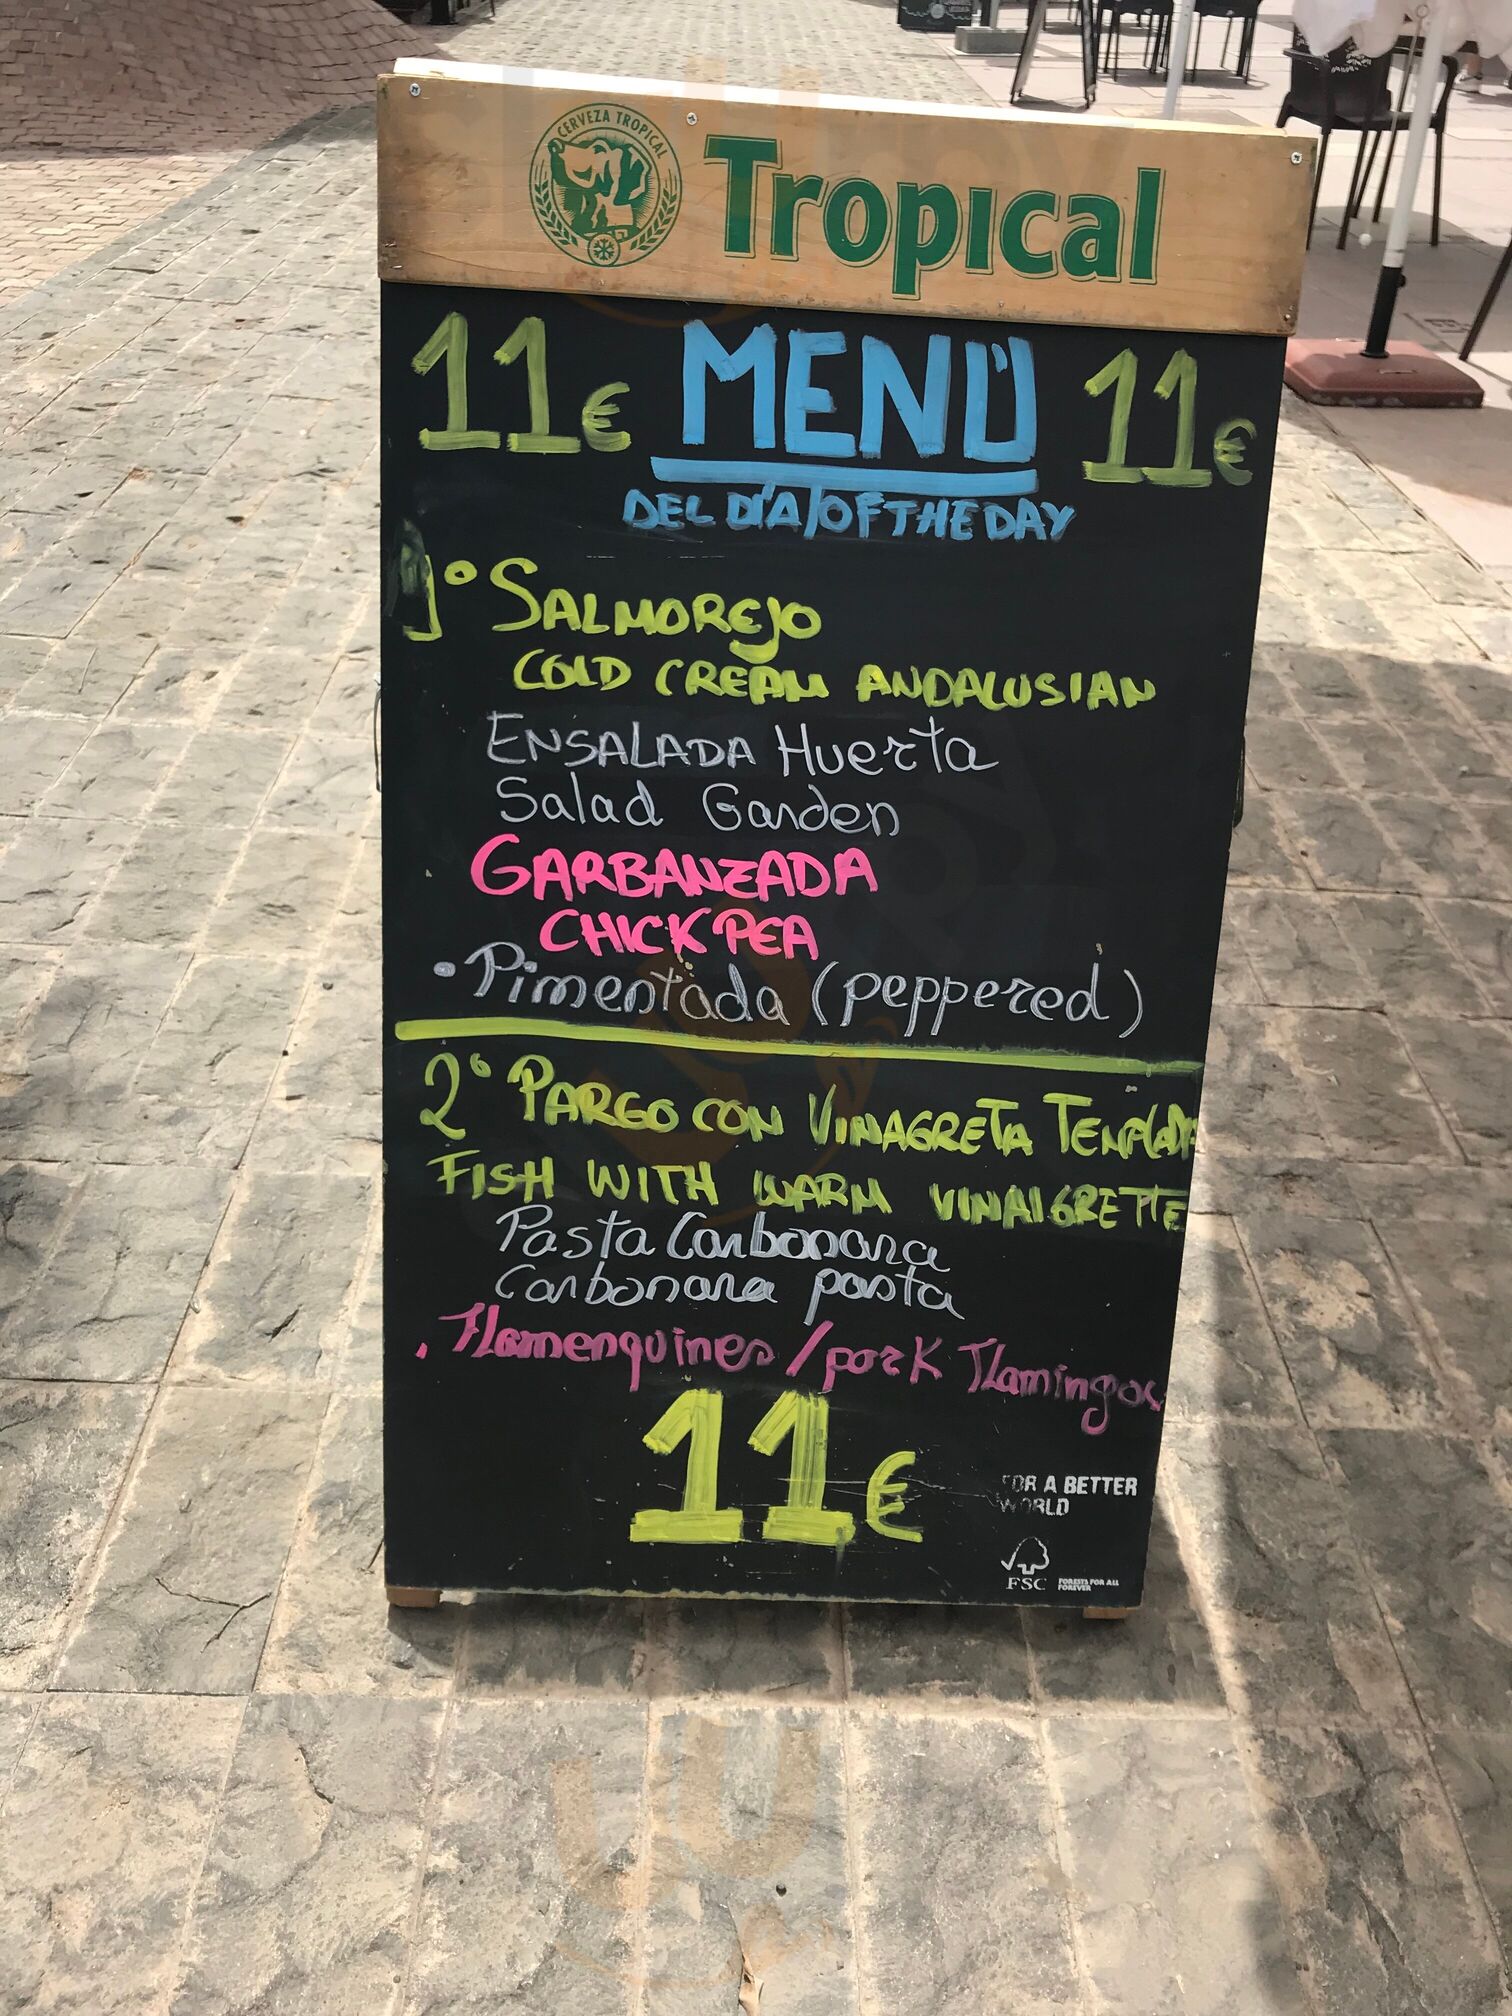 CERVEZA TROPICAL
Tropical
11€ MENÚ 11€
DEL DÍA/OF THE DAY
1º SALMOREJO
COLD CREAM ANDALUSIAN
ENSALADA Huerta
Salad Garden
GARBANZADA
CHICKPEA
• Pimentada (peppered)
2º PARGO CON VINAGRETA TEMPLADA
FISH WITH WARM VINAIGRETTE
Pasta Carbonara
Carbonara pasta
. Flamenquines / pork Flamingos
11€
FOR A BETTER
WORLD
FSC
FORESTS FOR ALL
FOREVER